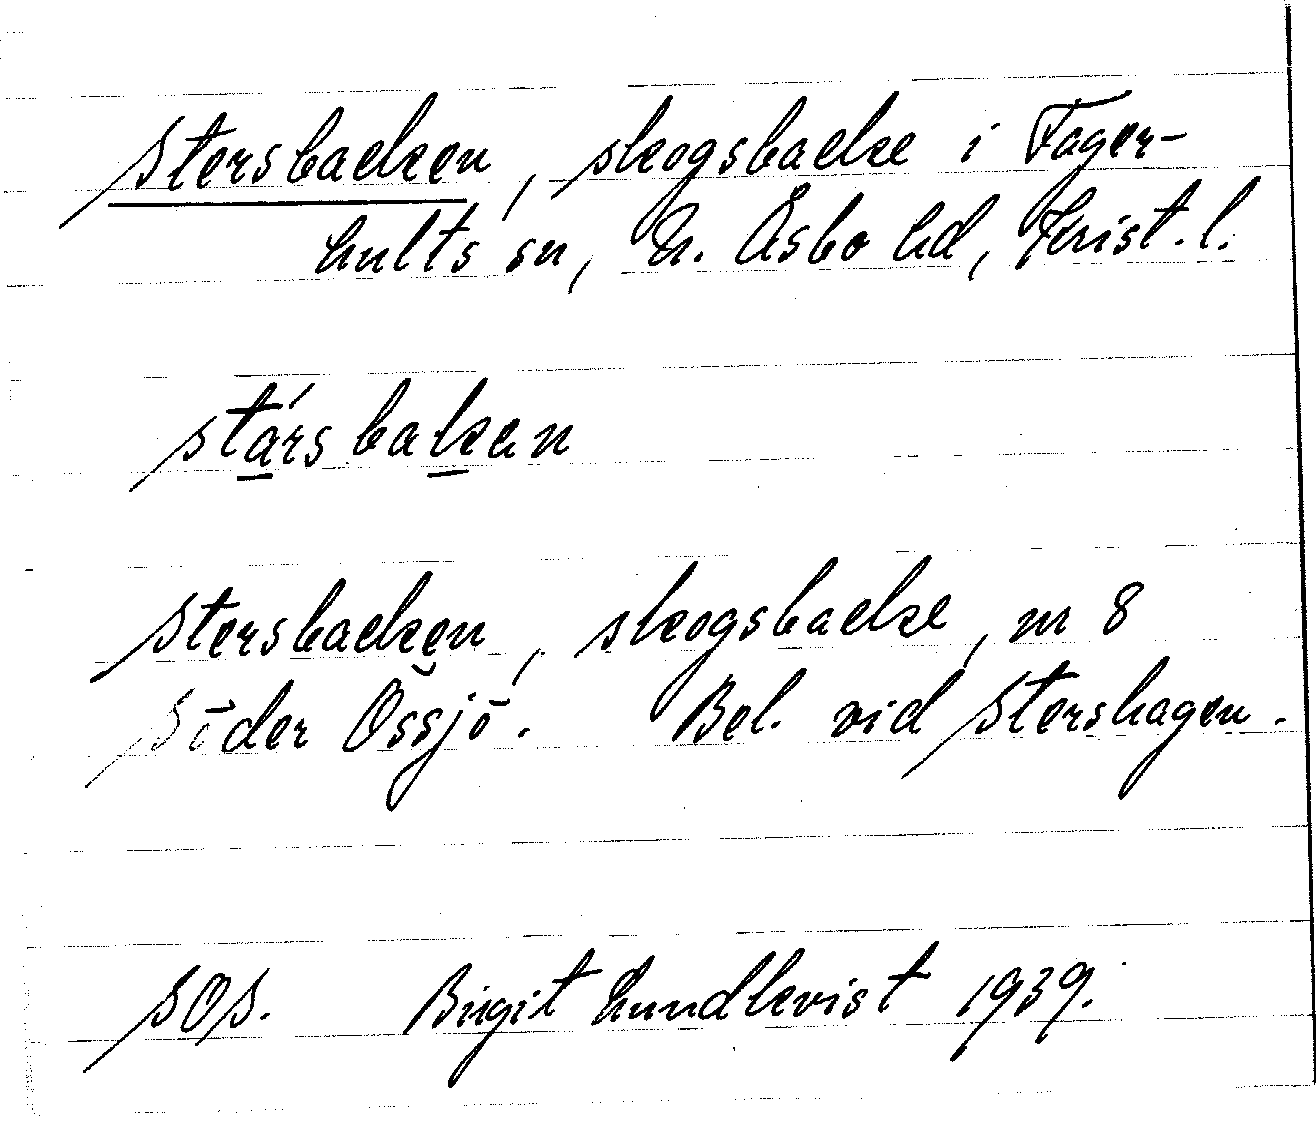 Stersbacken, skogsbacke i Fager-
hults sn, N. Åsbo hd, Krist. l.
stársbakan
Stersbacken, skogsbacke, nr 8
Söder Össjö. Bel. vid Stershagen.
SOS. Birgit Lundkvist 1939.